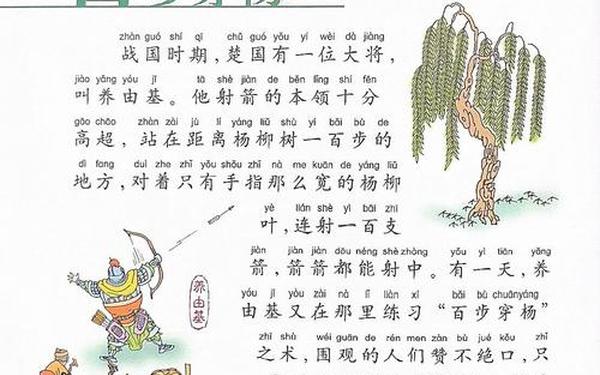 zhàn guó shí qī chǔ guó yǒu yí wèi dà jiàng
战国时期，楚国有一位大将，
jiào yǎng yóu jī tā shè jiàn de běn lǐng shí fēn
叫养由基。他射箭的本领十分
gāo chāo zhàn zài jù lí yáng liǔ shù yì bǎi bù de
高超，站在距离杨柳树一百步的
dì fang duì zhe zhǐ yǒu shǒu zhǐ nà me kuān de yáng liǔ
地方，对着只有手指那么宽的杨柳
yè lián shè yì bǎi zhī
叶，连射一百支
jiàn jiàn jiàn dōu néng shè zhòng yǒu yì tiān yǎng
箭，箭箭都能射中。有一天，养
yóu jī yòu zài nà lǐ liàn xí bǎi bù chuānyáng
由基又在那里练习“百步穿杨”
zhī shù wéi guān de rén men zàn bù jué kǒu zhǐ
之术，围观的人们赞不绝口，只
养由基